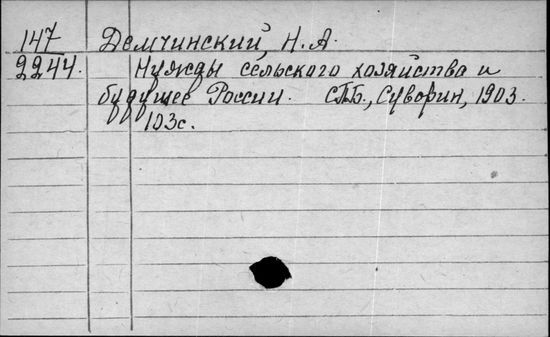 147 Демчинский, Н. А.
2244. Нужды сельского хозяйства и
будущее России. СПБ., Суворин, 1903.
103с.